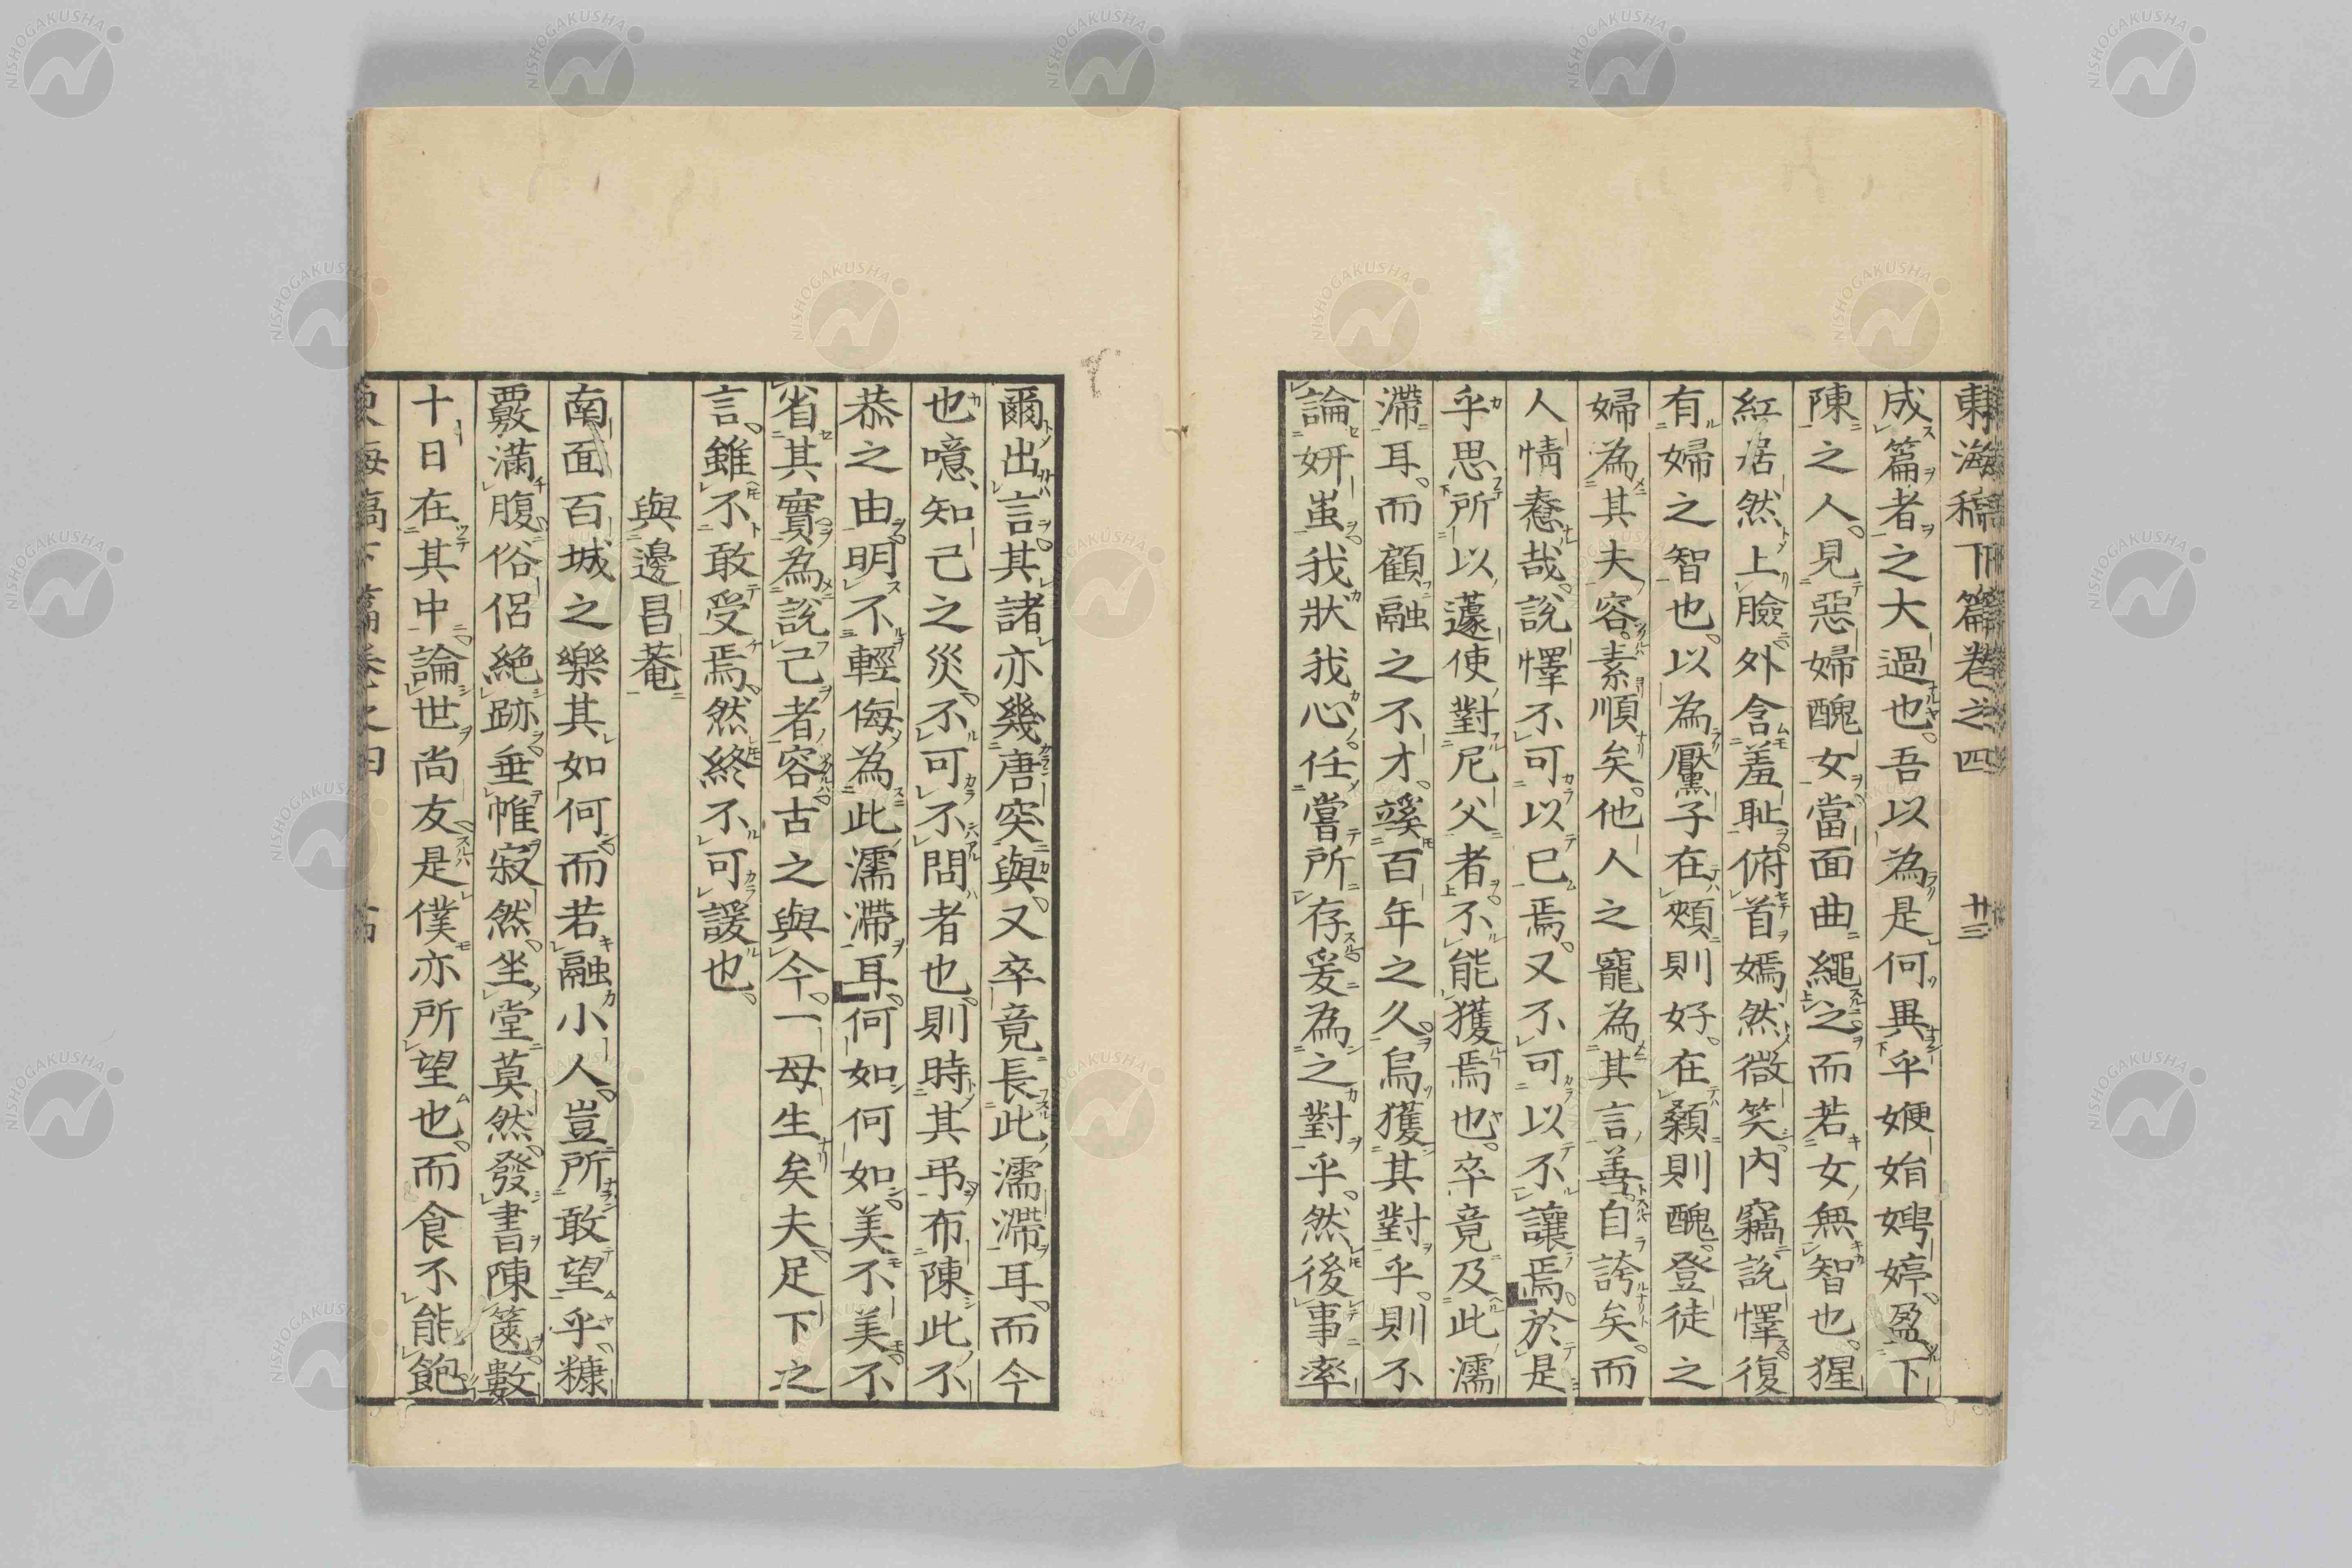 東海稿下篇卷之四 廿三
成篇者之大過也吾以為是何異乎㛹姷娉婷盈下
陳之人見惡婦醜女當面曲繩之而若女無智也猩
紅居然上臉外含羞耻俯首嫣然微笑内竊説懌復
有婦之智也以為靨子在頰則好在顙則醜登徒之
婦為其夫容素順矣他人之寵為其言善自誇矣而
人情惷哉説懌不可以已焉又不可以不讓焉於是
乎思所以蘧使對尼父者不能獲焉也卒竟及此濡
滯耳而顧融之不才奚百年之久烏獲其對乎則不
論妍蚩我狀我心任嘗所存爰為之對乎然後事率
爾出言其諸亦幾唐突與又卒竟長此濡滯耳而今
也噫知己之災不可不問者也則時其弔布陳此不
恭之由明不輕侮為此濡滯耳何如何如美不美不
省其實為説己者容古之與今一母生矣夫足下之
言雖不敢受焉然終不可諼也
與邊昌菴
南面百城之樂其如何而若融小人豈所敢望乎糠
覈滿腹俗侶絶跡垂帷寂然坐堂莫然發書陳篋數
十日在其中論世尚友是僕亦所望也而食不能飽
東海稿下篇卷之四
NISHOGAKUSHA